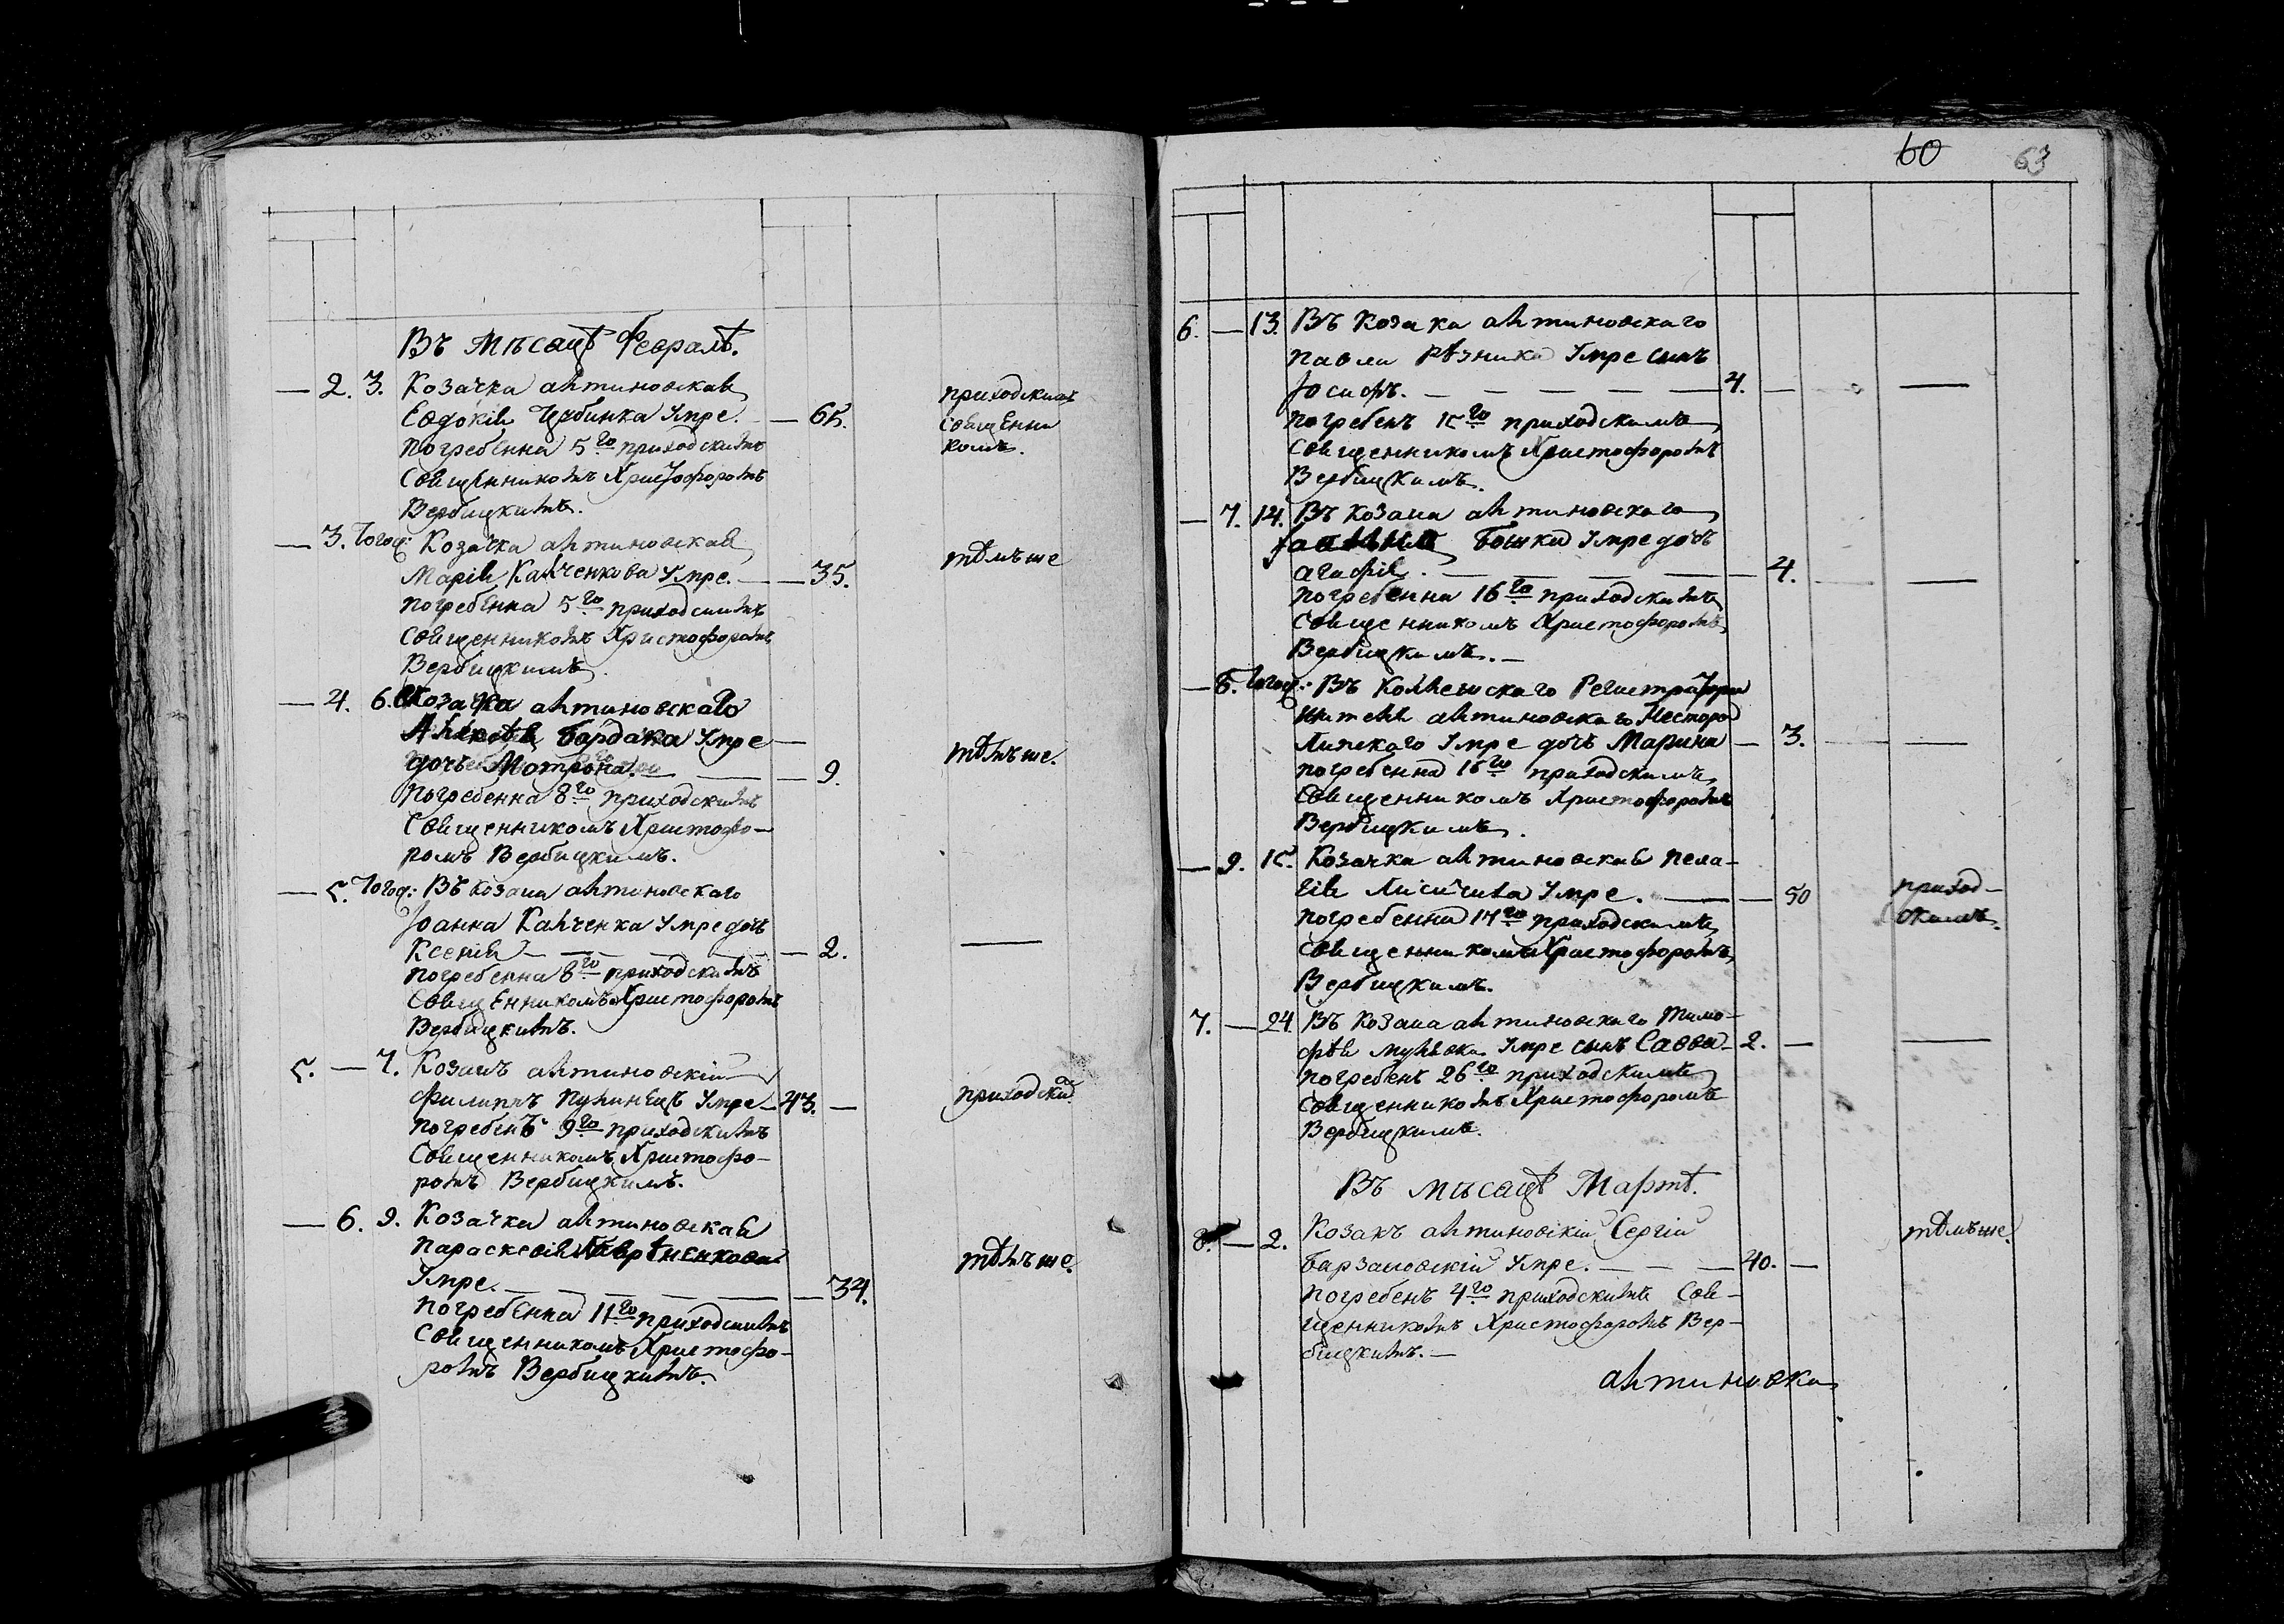 60 63
Въ Мѣсяцѣ Февралѣ.
— 2. 3. Козачка антиновская
Евдокія Чубинка умре. — 65. приходскимъ
погребенна 5го приходскимъ священни
священникомъ Христофоромъ комъ.
Вербицкимъ.
— 3. Тогож: Козачка антиновская
Марія Канченкова умре. — — 35. тѣмъ же
погребенна 5го приходскимъ
священникомъ Христофоромъ
Вербицкимъ.
— 4. 6. Козака антиновскаго
Бардака умре —
дочь Мотрона. — — 9. тѣмъ же.
погребенна 8го приходскимъ
священникомъ Христофо-
ромъ Вербицкимъ.
— 5. Тогож: Въ козака антиновскаго
Іоанна Канченка умре дочь
Ксенія — — — — — 2. —
погребенна 8го приходскимъ
священникомъ Христофоромъ
Вербицкимъ.
5. — 7. Козакъ антиновскій
Филиппъ умре — 43. — приходским
погребенъ 9го приходскимъ
священникомъ Христофо-
ромъ Вербицкимъ.
— 6. 9. Козачка антиновская
Параскевія
умре. — — — — — 34. тѣмъ же.
погребенна 11го приходскимъ
священникомъ Христофо-
ромъ Вербицкимъ.
6. — 13. Въ Козака антиновскаго
Павла Рѣзника умре сынъ
Іосифъ. — — — — — 4. — —
погребенъ 15го приходскимъ
священникомъ Христофоромъ
Вербицкимъ.
— 7. 14. Въ козака антиновскаго
Бошка умре дочь
Агафія. — — — — — 4. — —
погребенна 16го приходскимъ
священникомъ Христофоромъ
Вербицкимъ. —
— 8. Тогож: Въ Коллежскаго Регистратора
жителя антиновскаго Нестора
Липскаго умре дочь Марина — 3. — —
погребенна 16го приходскимъ
священникомъ Христофоромъ
Вербицкимъ.
— 9. 15. Козачка антиновская Пела-
гія умре. — — 50 приход-
погребенна 17го приходскимъ скимъ.
священникомъ Христофоромъ
Вербицкимъ.
7. — 24. Въ Козака антиновскаго Тимо-
фѣя умре сынъ Савва — 2. — —
погребенъ 26го приходскимъ
священникомъ Христофоромъ
Вербицкимъ.
Въ мѣсяцѣ Мартѣ.
8. — 2. Козакъ антиновскій Сергій тѣмъ же.
Барзаковскій умре. — — — 40. —
погребенъ 4го приходскимъ Свя-
щенникомъ Христофоромъ Вер-
бицкимъ. —
антиновка